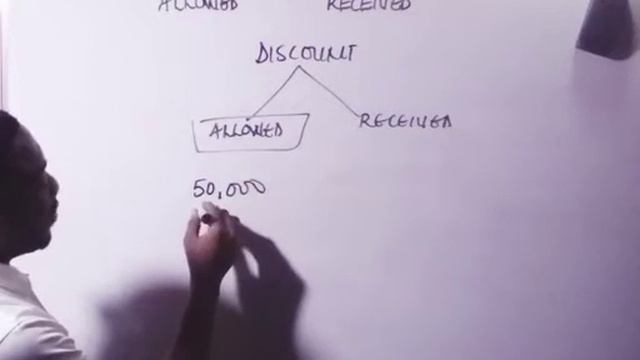 ALLOWED RECEIVED
DISCOUNT
ALLOWED RECEIVED
50,000